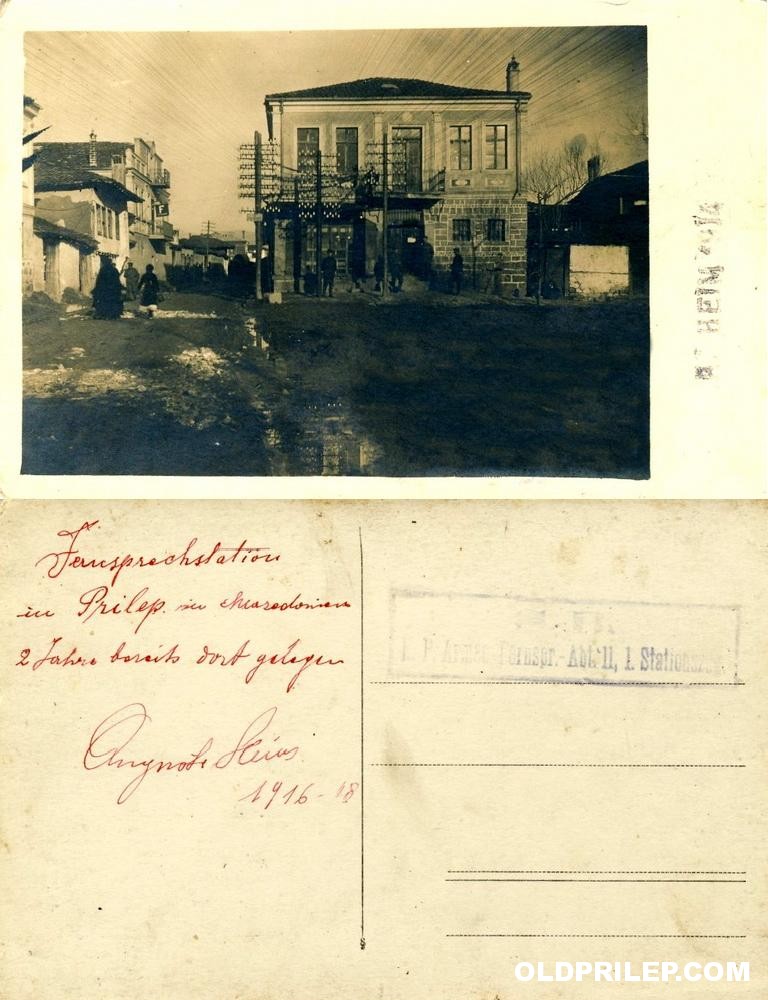 HEIM
Fernsprechstation
in Prilep in Mazedonien
2 Jahre bereits dort gelegen
August
1916-18
Fernspr.-Abt. 11, 1. Stationszug
OLDPRILEP.COM